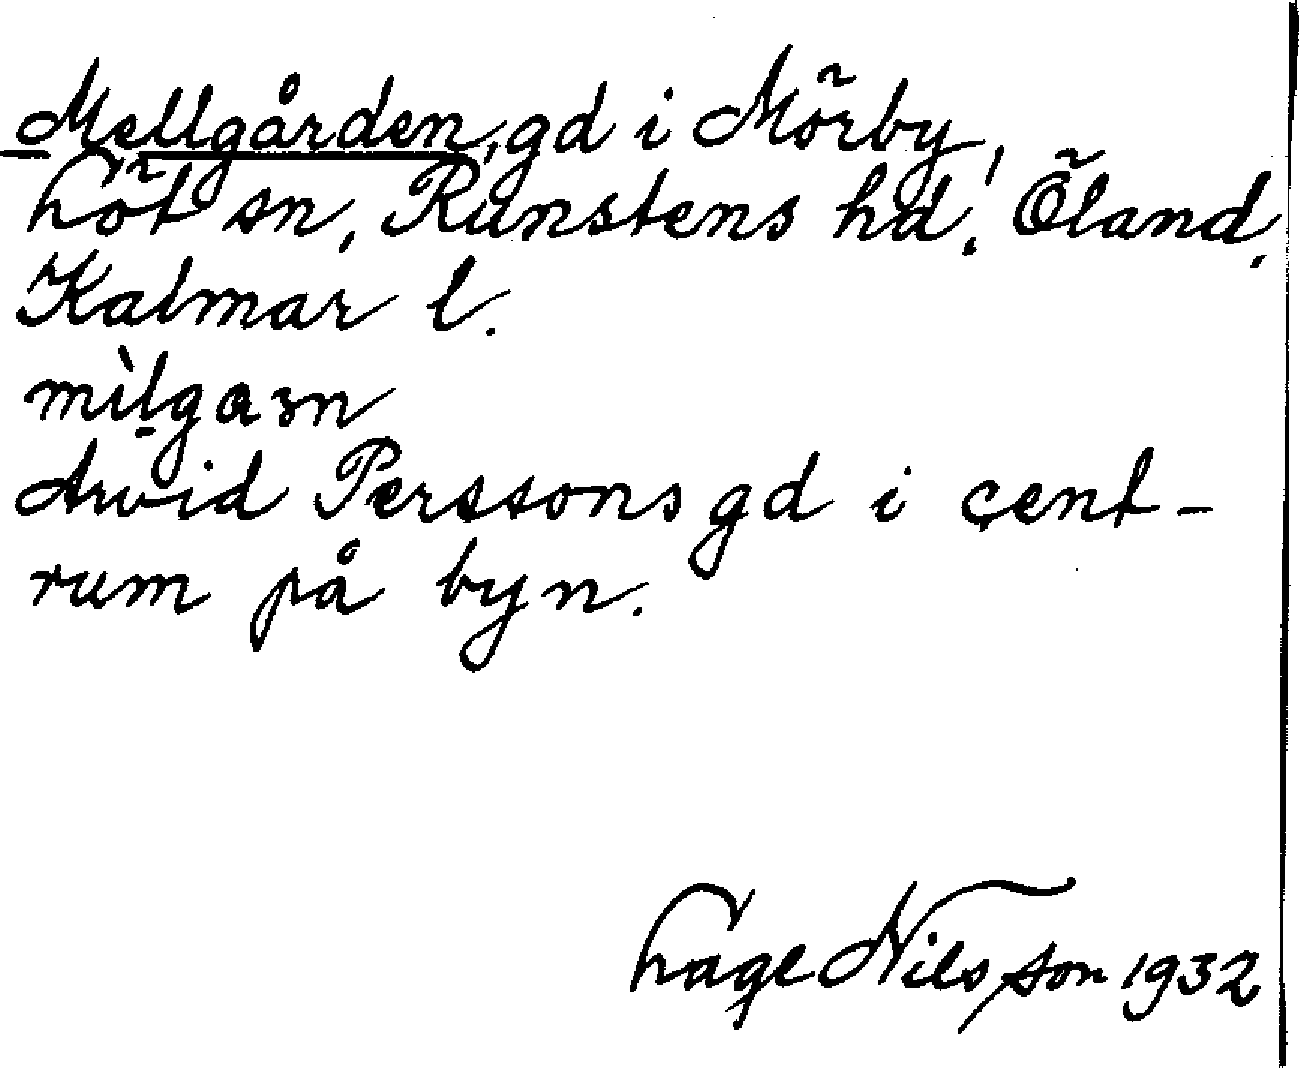 Mellgården, gd i Mörby,
Löt sn, Runstens hd, Öland,
Kalmar l.
mìl̠gaɜn
Arvid Perssons gd i cent-
rum på byn.
Hage Nilsson 1932